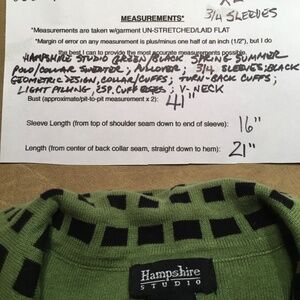 3/4 SLEEVES
MEASUREMENTS*
*Measurements are taken w/garment UN-STRETCHED/LAID FLAT
*Margin of error on any measurement is plus/minus one half of an inch (1/2"), but I do
the best I can to provide the most accurate measurements possible.
HAMPSHIRE STUDIO GREEN/BLACK SPRING SUMMER
POLO/COLLAR SWEATER; PULLOVER; 3/4 SLEEVES; BLACK
GEOMETRIC DESIGN, COLLAR/CUFFS; TURN-BACK CUFFS;
LIGHT PILLING, ESP. CUFF EDGES; V-NECK
Bust (approximate/pit-to-pit measurement x 2): 41"
Sleeve Length (from top of shoulder seam down to end of sleeve): 16"
Length (from center of back collar seam, straight down to hem): 21"
Hampshire
STUDIO